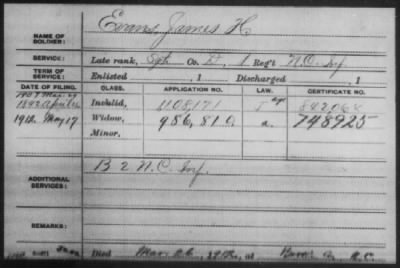 NAME OF SOLDIER: Evans, James H.
SERVICE: Late rank, Sgt Co. D, 1 Reg't N.C. Inf.
TERM OF SERVICE: Enlisted , 1 Discharged , 1
DATE OF FILING. CLASS. APPLICATION NO. LAW. CERTIFICATE NO.
1892 April Invalid, 1108171 842064
1912. May 17 Widow, 986,810. a. 748925
Minor.
ADDITIONAL SERVICES: B 2 N.C. Inf.
REMARKS:
Died at N.C.